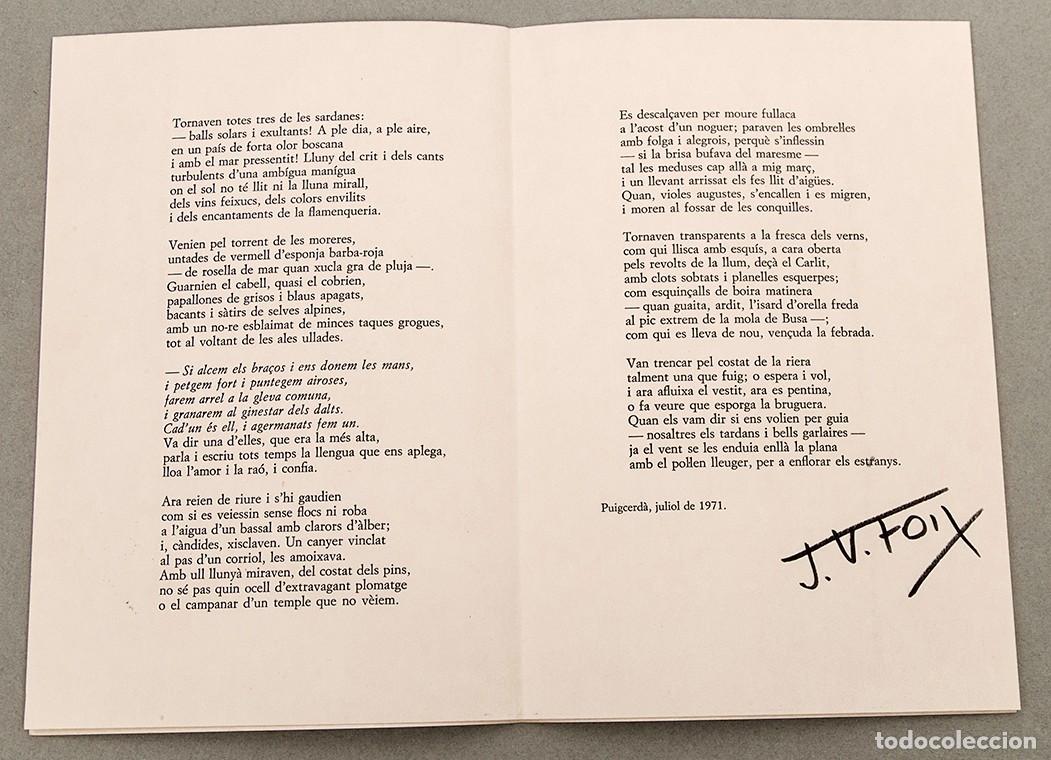 Tornaven totes tres de les sardanes:
— balls solars i exultants! A ple dia, a ple aire,
en un país de forta olor boscana
i amb el mar pressentit! Lluny del crit i dels cants
turbulents d'una ambígua manígua
on el sol no té llit ni la lluna mirall,
dels vins feixucs, dels colors envilits
i dels encantaments de la flamenqueria.
Venien pel torrent de les moreres,
untades de vermell d'esponja barba-roja
— de rosella de mar quan xucla gra de pluja —.
Guarnien el cabell, quasi el cobrien,
papallones de grisos i blaus apagats,
bacants i sàtirs de selves alpines,
amb un no-re esblaimat de minces taques grogues,
tot al voltant de les ales ullades.
— Si alcem els braços i ens donem les mans,
i petgem fort i puntegem airoses,
farem arrel a la gleva comuna,
i granarem al ginestar dels dalts.
Cad'un és ell, i agermanats fem un.
Va dir una d'elles, que era la més alta,
parla i escriu tots temps la llengua que ens aplega,
lloa l'amor i la raó, i confia.
Ara reien de riure i s'hi gaudien
com si es veiessin sense flocs ni roba
a l'aigua d'un bassal amb clarors d'àlber;
i, càndides, xisclaven. Un canyer vinclat
al pas d'un corriol, les amoixava.
Amb ull llunyà miraven, del costat dels pins,
no sé pas quin ocell d'extravagant plomatge
o el campanar d'un temple que no vèiem.
Es descalçaven per moure fullaca
a l'acost d'un noguer; paraven les ombrel·les
amb folga i alegrois, perquè s'inflessin
— si la brisa bufava del maresme —
tal les meduses cap allà a mig març,
i un llevant arrissat els fes llit d'aigües.
Quan, violes augustes, s'encallen i es migren,
i moren al fossar de les conquilles.
Tornaven transparents a la fresca dels verns,
com qui llisca amb esquís, a cara oberta
pels revolts de la llum, deçà el Carlit,
amb clots sobtats i planelles esquerpes;
com esquinçalls de boira matinera
— quan guaita, ardit, l'isard d'orella freda
al pic extrem de la mola de Busa —;
com qui es lleva de nou, vençuda la febrada.
Van trencar pel costat de la riera
talment una que fuig; o espera i vol,
i ara afluixa el vestit, ara es pentina,
o fa veure que esporga la bruguera.
Quan els vam dir si ens volien per guia
— nosaltres els tardans i bells garlaires —
ja el vent se les enduia enllà la plana
amb el pol·len lleuger, per a enflorar els estranys.
Puigcerdà, juliol de 1971.
J. V. FOIX
todocoleccion